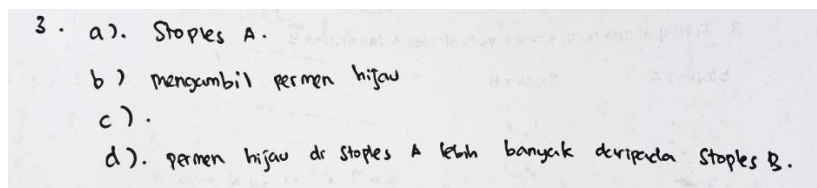 3. a). Stoples A.
b) mengambil permen hijau
c).
d). permen hijau dr stoples A lebih banyak daripada Stoples B.